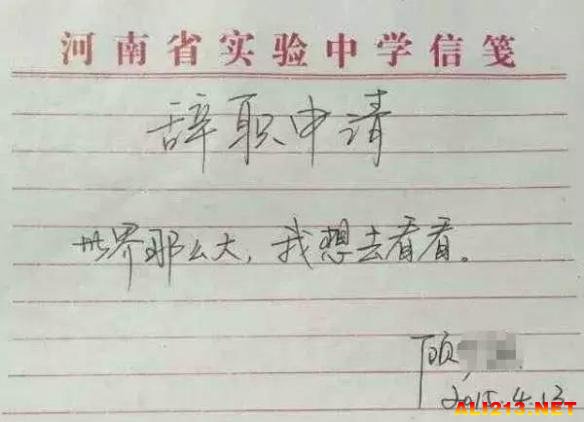 河南省实验中学信笺
辞职申请
世界那么大，我想去看看。
顾
2015.4.13
ALI213.NET